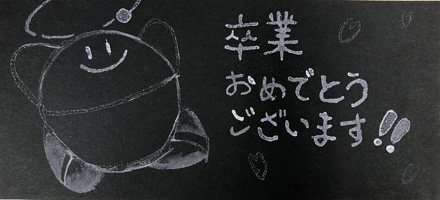 卒業
おめでとう
ございます!!